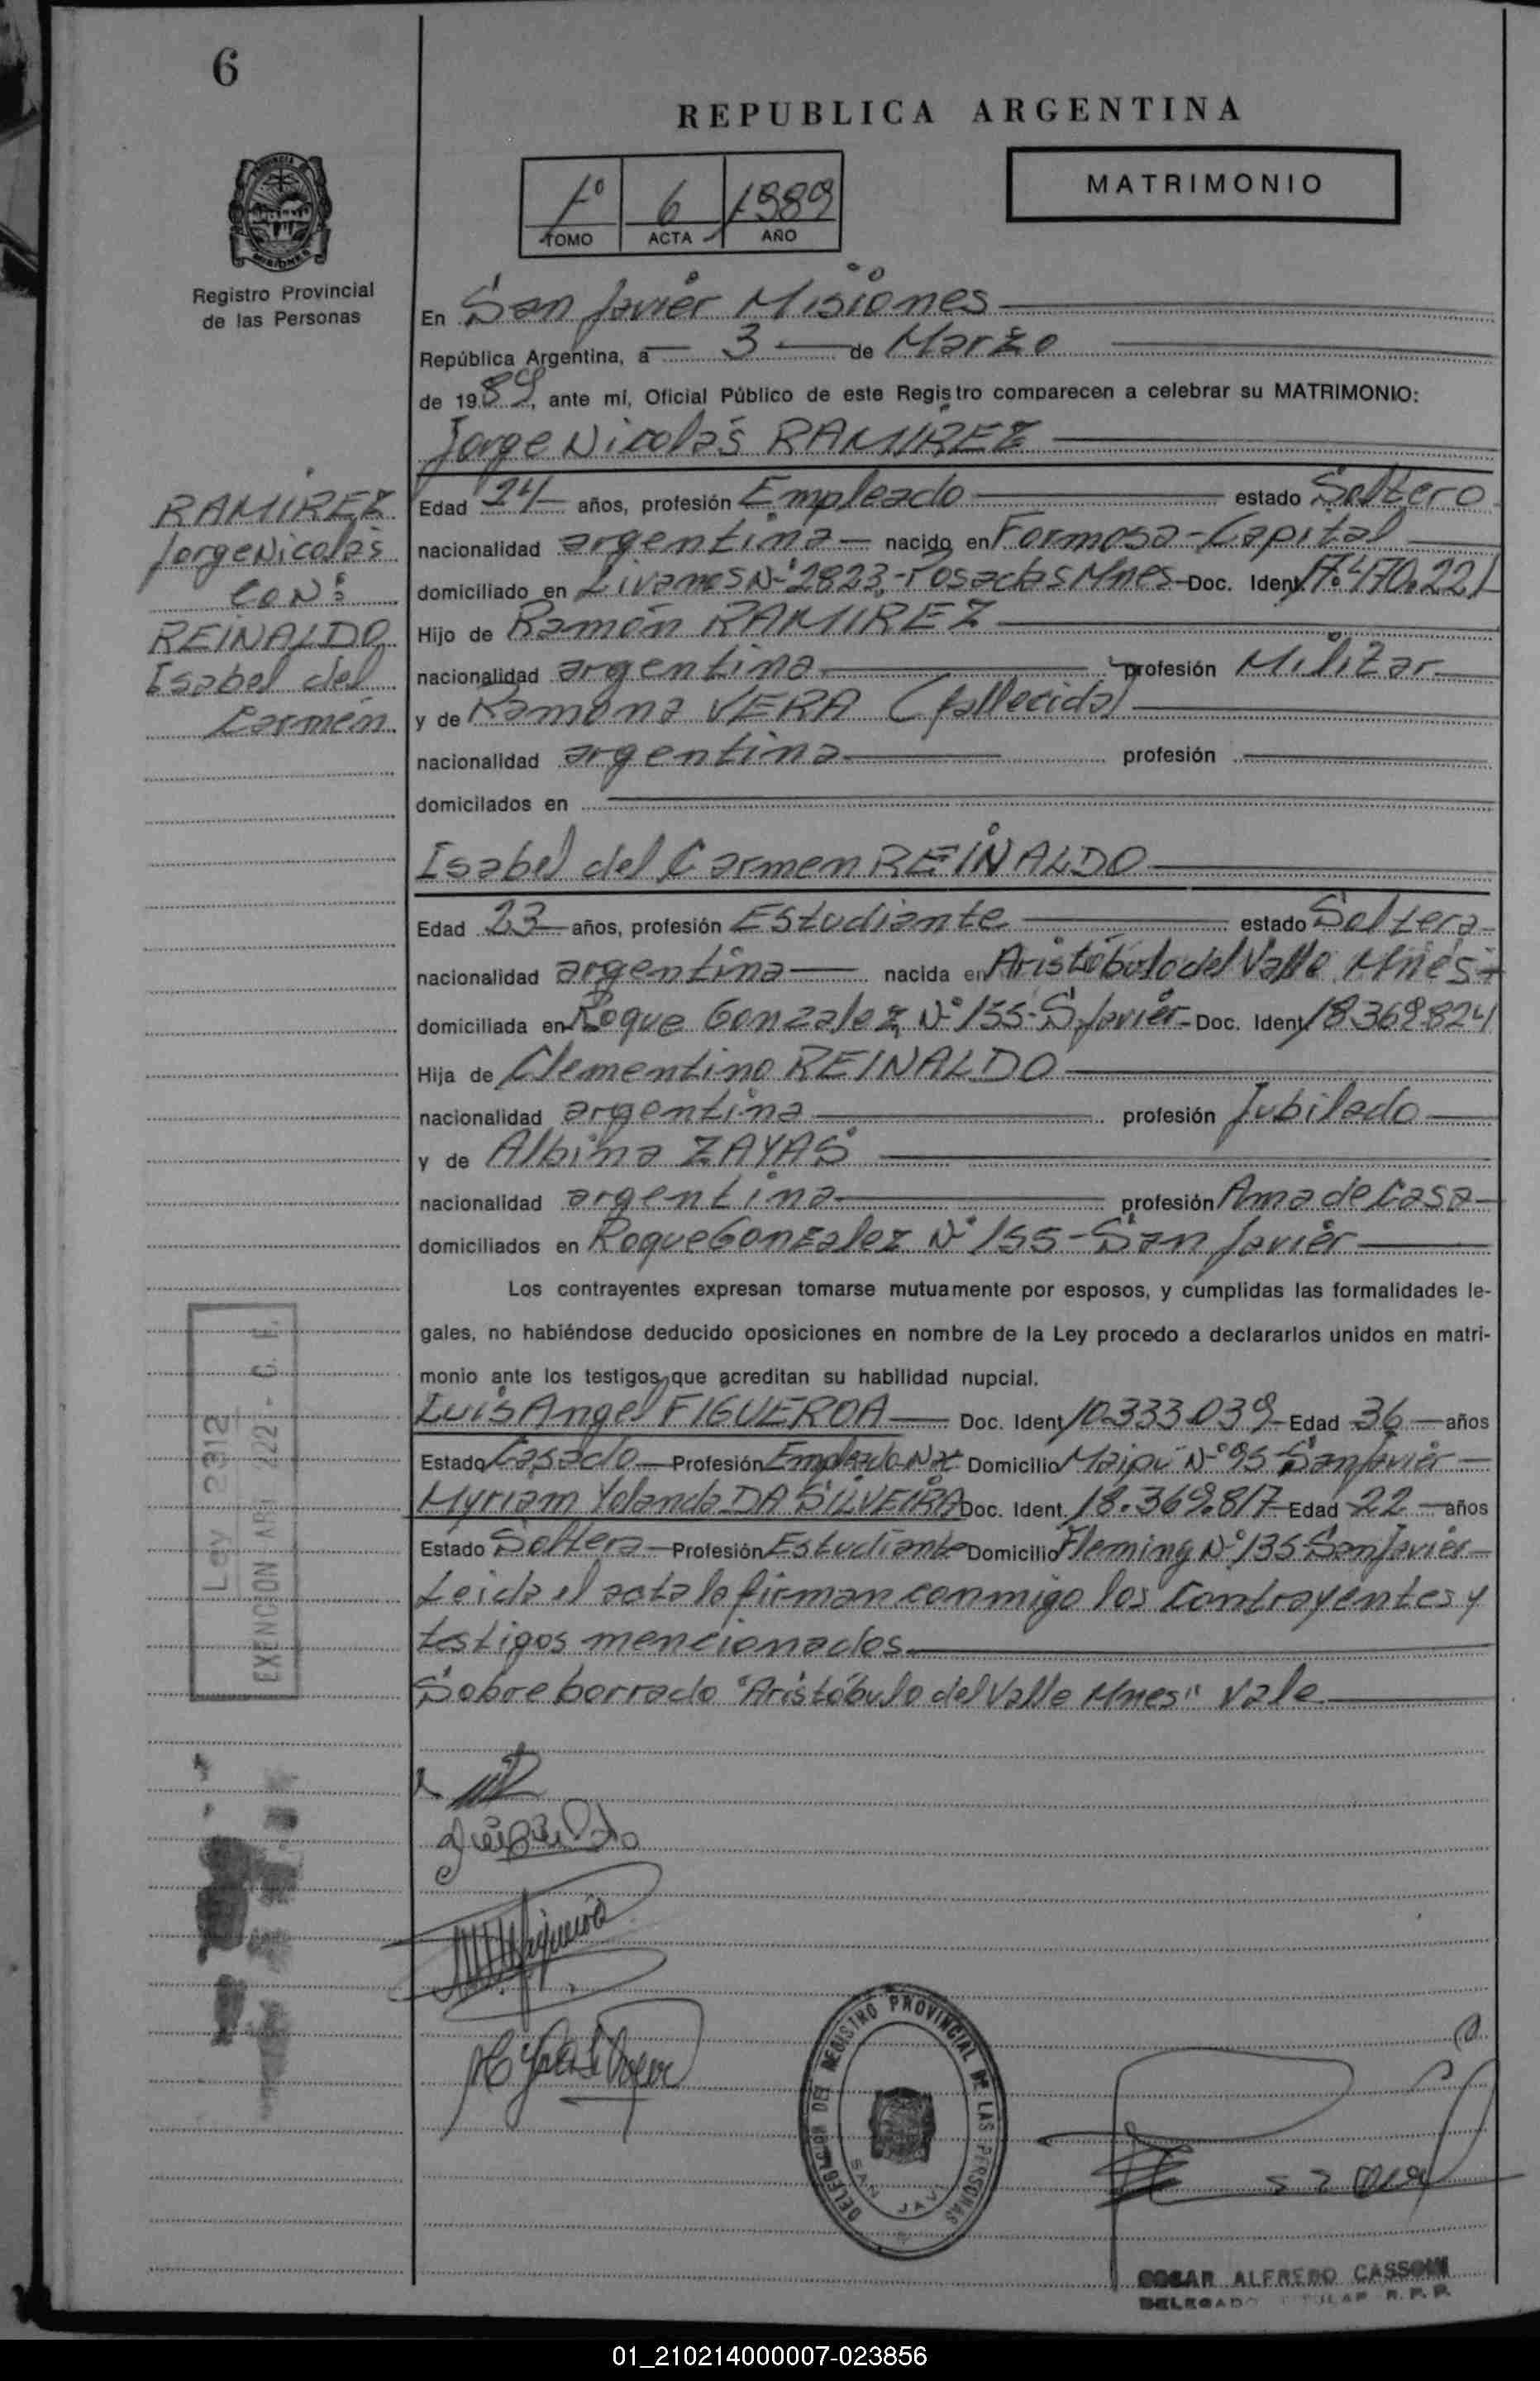 6
REPUBLICA ARGENTINA
1º 6 1989
TOMO ACTA AÑO
MATRIMONIO
Registro Provincial
de las Personas
En San Javier Misiones
República Argentina, a 3 de Marzo
de 1989, ante mí, Oficial Público de este Registro comparecen a celebrar su MATRIMONIO:
Jorge Nicolás RAMIREZ
RAMIREZ
Jorge Nicolás
CON:
REINALDO
Isabel del
Carmen
Edad 24 años, profesión Empleado estado Soltero
nacionalidad argentina nacido en Formosa-Capital
domiciliado en Nº 2823,-Posadas Mnes-Doc. Ident. 17.470.221
Hijo de Ramón RAMIREZ
nacionalidad argentina profesión Militar
y de Ramona VERA (fallecida)
nacionalidad argentina profesión
domicilados en
Isabel del Carmen REINALDO
Edad 23 años, profesión Estudiante estado Soltera
nacionalidad argentina nacida en Aristóbulo del Valle Mnes
domiciliada en Roque Gonzalez Nº 155-S. Javier-Doc. Ident. 18.369.824
Hija de Clementino REINALDO
nacionalidad argentina profesión Jubilado
y de Albina ZAYAS
nacionalidad argentina profesión Ama de Casa
domiciliados en Roque Gonzalez Nº 155-San Javier
Los contrayentes expresan tomarse mutuamente por esposos, y cumplidas las formalidades le-
gales, no habiéndose deducido oposiciones en nombre de la Ley procedo a declararlos unidos en matri-
monio ante los testigos que acreditan su habilidad nupcial.
Luis Angel FIGUEROA Doc. Ident. 10.333.039 Edad 36 años
Estado Casado Profesión Empleado Domicilio Maipú Nº 95 San Javier
Myriam Yolanda DA SILVEIRA Doc. Ident. 18.369.817 Edad 22 años
Estado Soltera Profesión Estudiante Domicilio Fleming Nº 135 San Javier
Leida el acta la firman conmigo los Contrayentes y
testigos mencionados.
Sobre borrado "Aristóbulo del Valle Mnes" Vale
Ley 2312
EXENCION AR. 222 - C. F.
DELEGACION DEL REGISTRO PROVINCIAL DE LAS PERSONAS
SAN JAVI
ALFREDO CASSONI
DELEGADO TITULAR R.P.P.
01_210214000007-023856